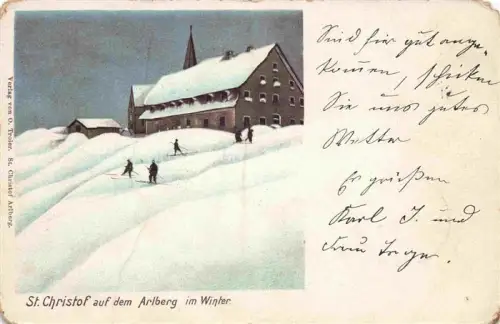 Verlag von O. Troler, St. Christof Arlberg.
Sind hier gut ange-
kommen, schicken
Sie uns gutes
Wetter
Es grüßen
Karl J. und
Frau
St. Christof auf dem Arlberg im Winter.